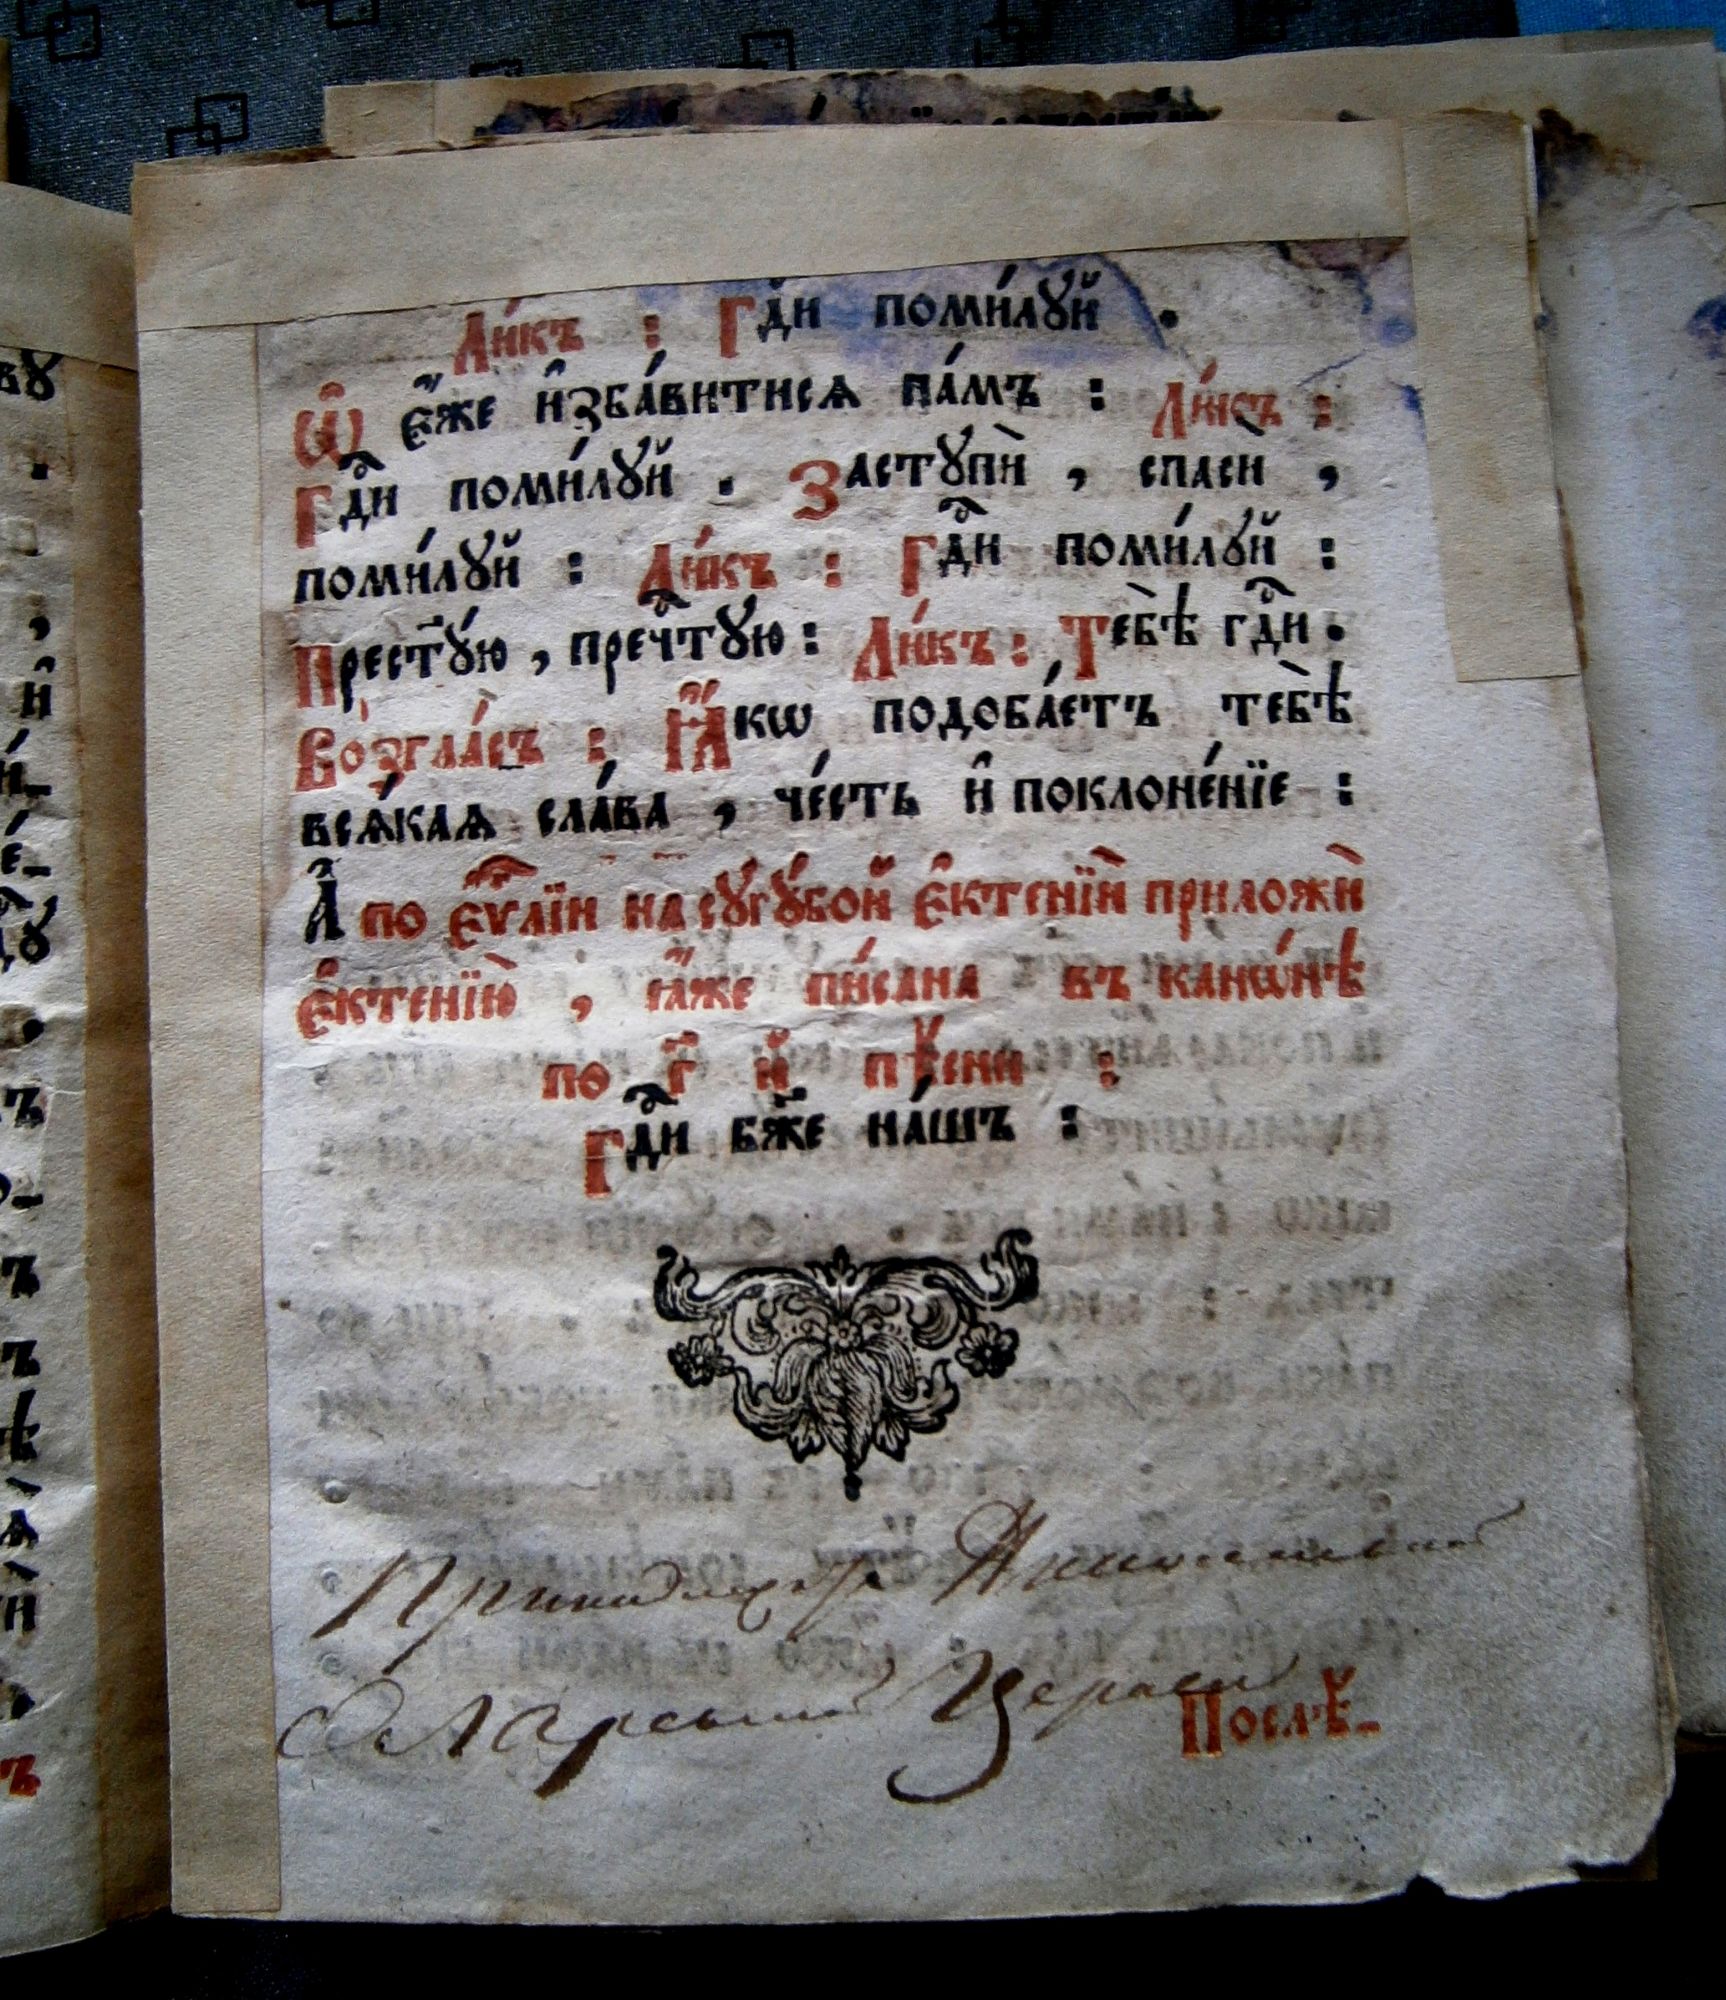 Ли́къ : Гдⷭ҇и поми́лꙋй .
Ѡ҆ є҆́же и҆зба́витисѧ на́мъ : Ли́къ :
Гдⷭ҇и поми́лꙋй . Застꙋпѝ , спасѝ ,
поми́лꙋй : Ли́къ : Гдⷭ҇и поми́лꙋй :
Прест҃ꙋ́ю , пречⷭ҇тꙋю : Ли́къ : Тебѣ̀ гдⷭ҇и .
Во́згласъ : Ꙗ҆́кѡ подоба́етъ тебѣ̀
всѧ́каѧ сла́ва , че́сть и҆ поклоне́нїе :
А҆ по є҆ѵⷢ҇лїи на сꙋгꙋ́бой є҆ктенїѝ приложѝ
є҆ктенїю̀ , ꙗ҆́же пи́сана въ канѡ́нѣ
по г҃ й пѣ́сни :
Гдⷭ҇и бж҃е на́шъ :
Принадлежитъ
Церкви
Послѣ́_